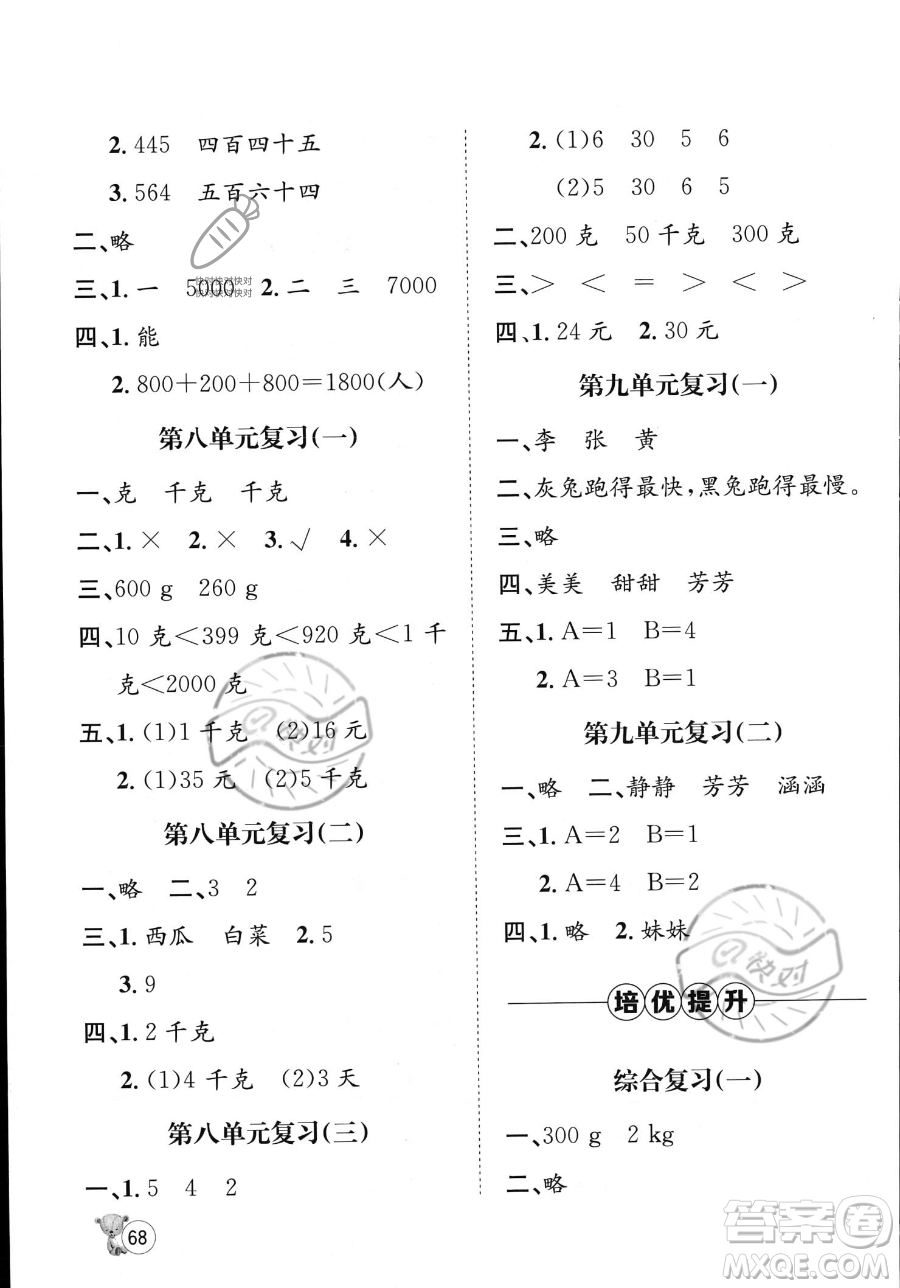 2. 445 四百四十五
3. 564 五百六十四
二、略
三、1. 一 5000 2. 二 三 7000
快对快对快对
快对快对快对
四、1. 能
2. 800＋200＋800＝1800(人)
第八单元复习(一)
一、克 千克 千克
二、1. × 2. × 3. √ 4. ×
三、600 g 260 g
四、10 克＜399 克＜920 克＜1 千
克＜2000 克
五、1. (1)1 千克 (2)16 元
2. (1)35 元 (2)5 千克
第八单元复习(二)
一、略 二、3 2
三、1. 西瓜 白菜 2. 5
3. 9
四、1. 2 千克
2. (1)4 千克 (2)3 天
第八单元复习(三)
一、1. 5 4 2
68
2. (1)6 30 5 6
(2)5 30 6 5
二、200 克 50 千克 300 克
三、＞ ＜ ＝ ＞ ＜ ＞
四、1. 24 元 2. 30 元
第九单元复习(一)
一、李 张 黄
二、灰兔跑得最快，黑兔跑得最慢。
三、略
四、美美 甜甜 芳芳
五、1. A＝1 B＝4
2. A＝3 B＝1
第九单元复习(二)
一、略 二、静静 芳芳 涵涵
三、1. A＝2 B＝1
2. A＝4 B＝2
四、1. 略 2. 妹妹
培优提升
综合复习(一)
一、300 g 2 kg
二、略
快对
快对
答案卷
MXQE.COM